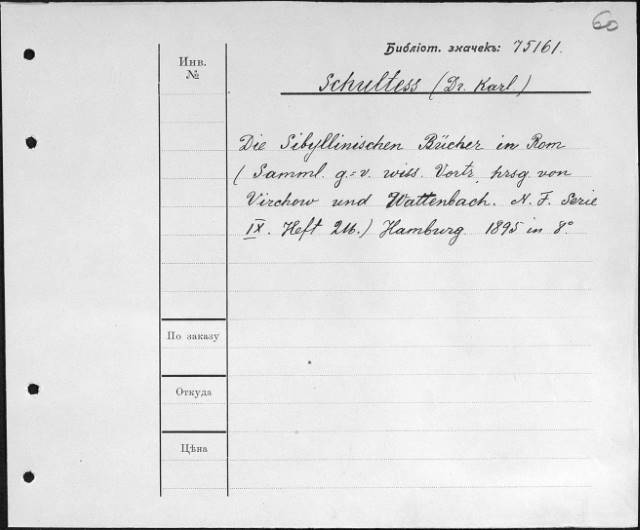 60
Библіот. значекъ: 75161.
Инв.
№
Schultess (Dr. Karl.)
Die Sibyllinischen Bücher in Rom
(Samml. g.-v. wiss. Vortr. hrsg von
Virchow und Wattenbach. N. F. Serie
IX. Heft 216.) Hamburg 1895 in 8°
По заказу
Откуда
Цѣна